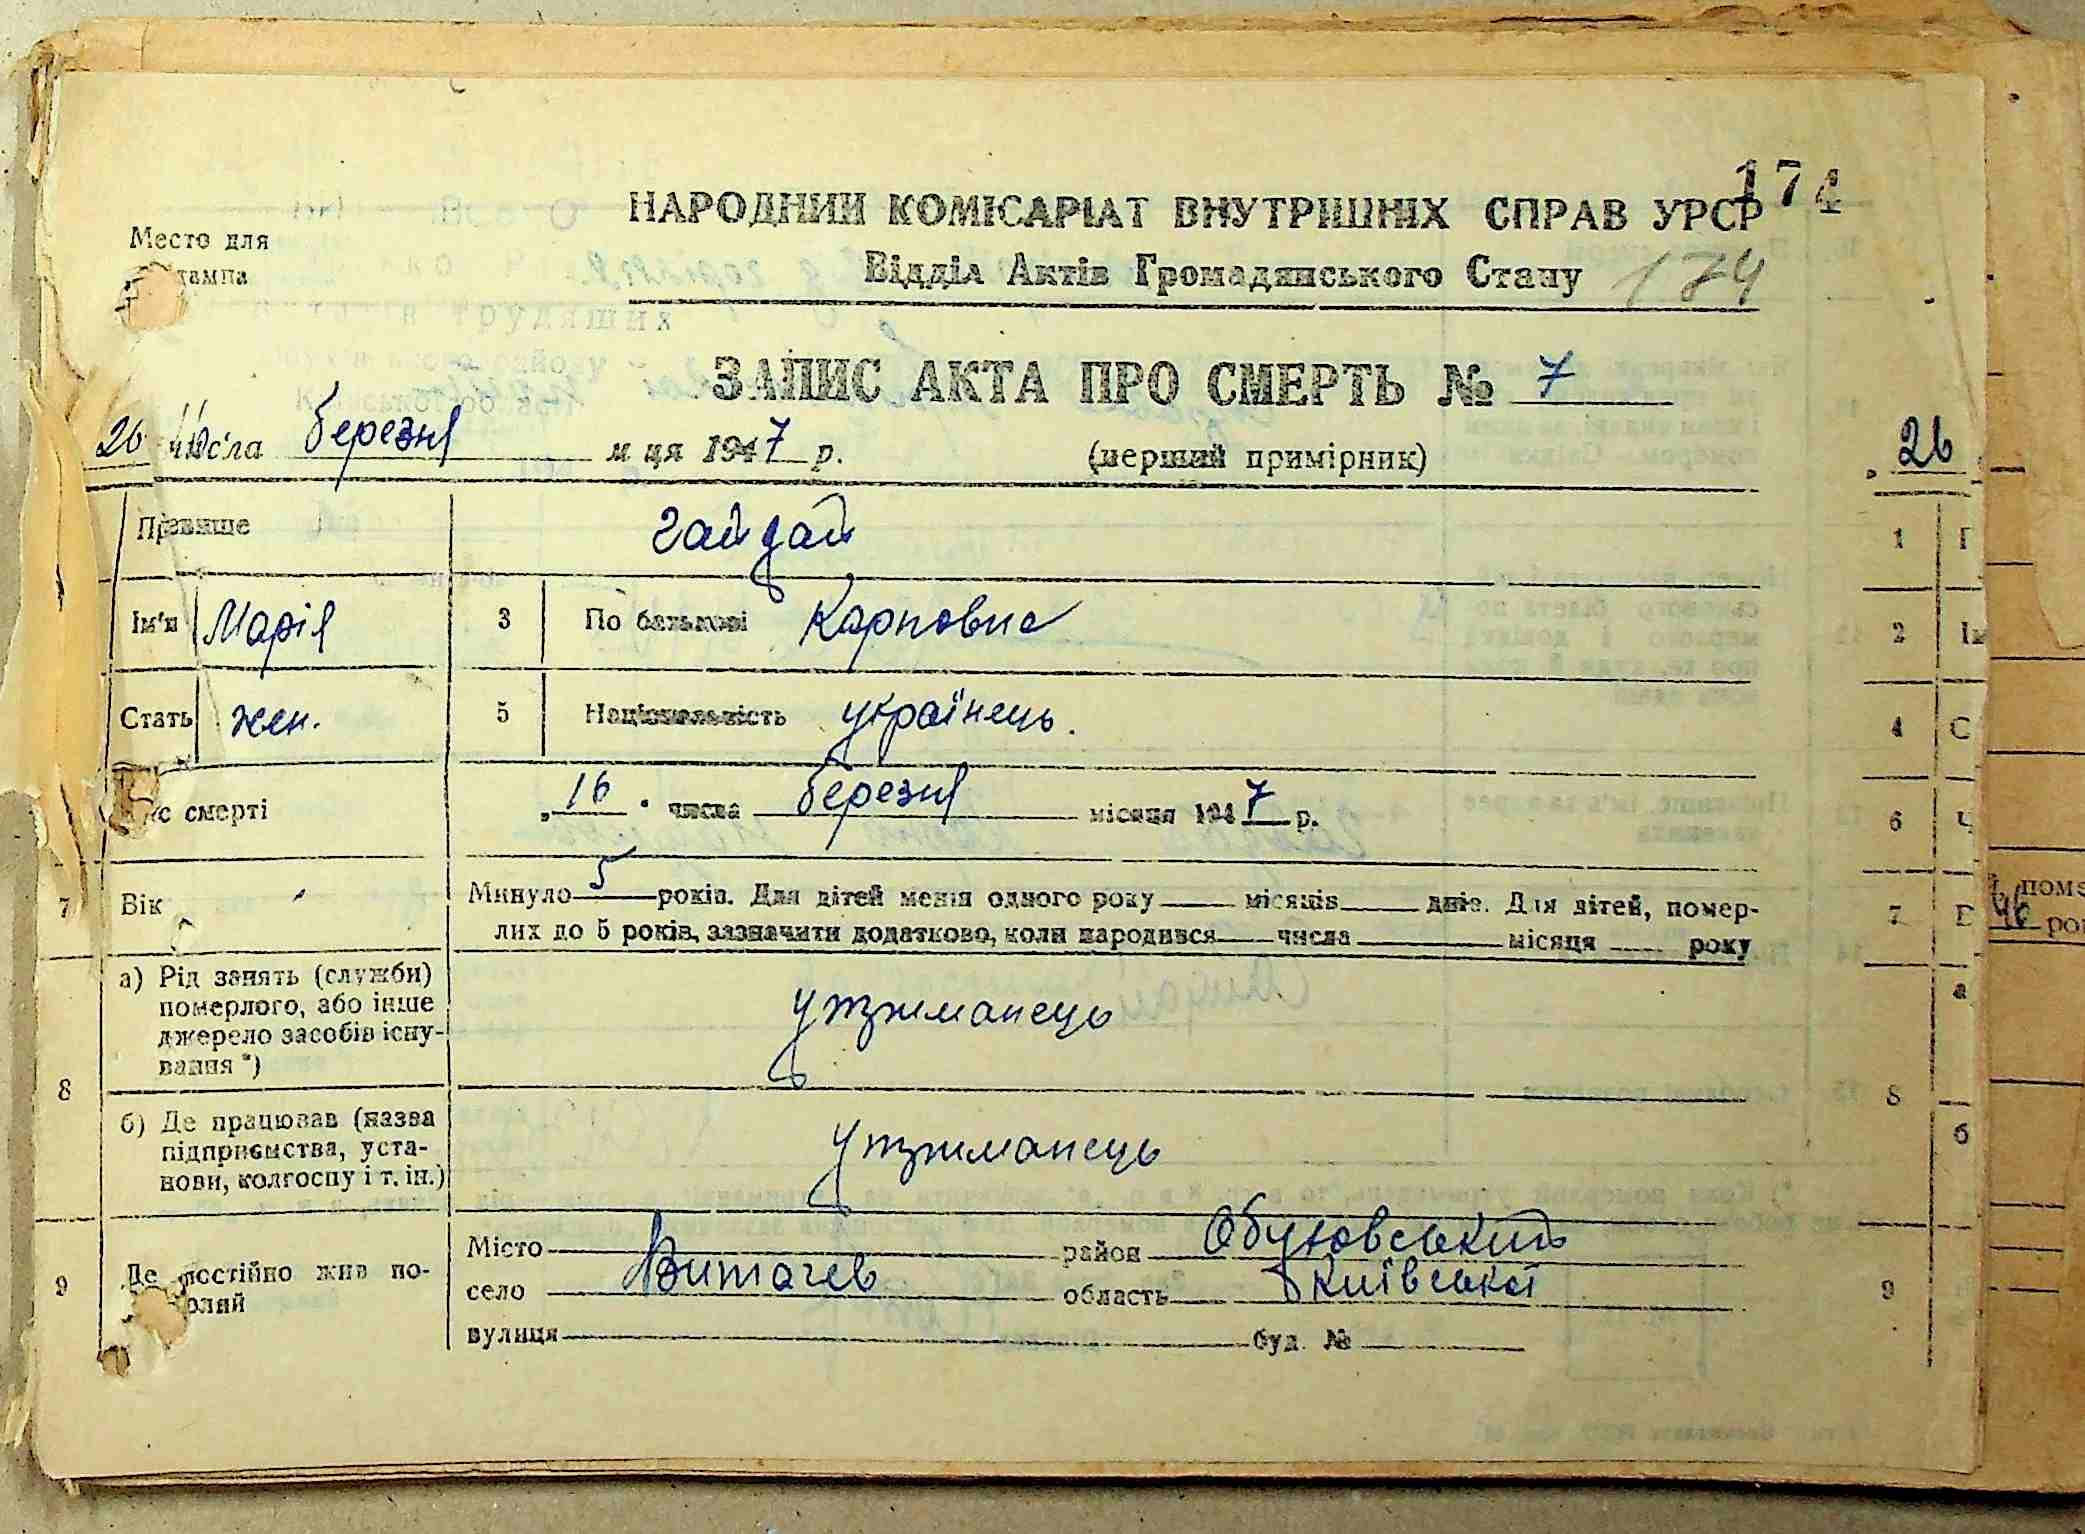 174
НАРОДНИЙ КОМІСАРІАТ ВНУТРІШНІХ СПРАВ УРСР
Место для
Відділ Актів Громадянського Стану 174
ЗАПИС АКТА ПРО СМЕРТЬ № 7
26 числа березня м-ця 1947 р. (перший примірник) 26
Прізвище Гайдай 1
Ім'я Марія 3 По батькові Карповна 2
Стать жен. 5 Національність українець. 4
с смерті „16" числа березня місяця 1947 р. 6
7 Вік Минуло 5 років. Для дітей менш одного року місяців днів. Для дітей, помер- 7
лих до 5 років, зазначити додатково, коли народився числа місяця року
8 а) Рід занять (служби)
померлого, або інше
джерело засобів існу-
вання *) утриманець
б) Де працював (назва
підприємства, уста-
нови, колгоспу і т. ін.) утриманець 8
9 Де постійно жив по- Місто район Обуховський 9
село Витачев область Київської
вулиця буд. №